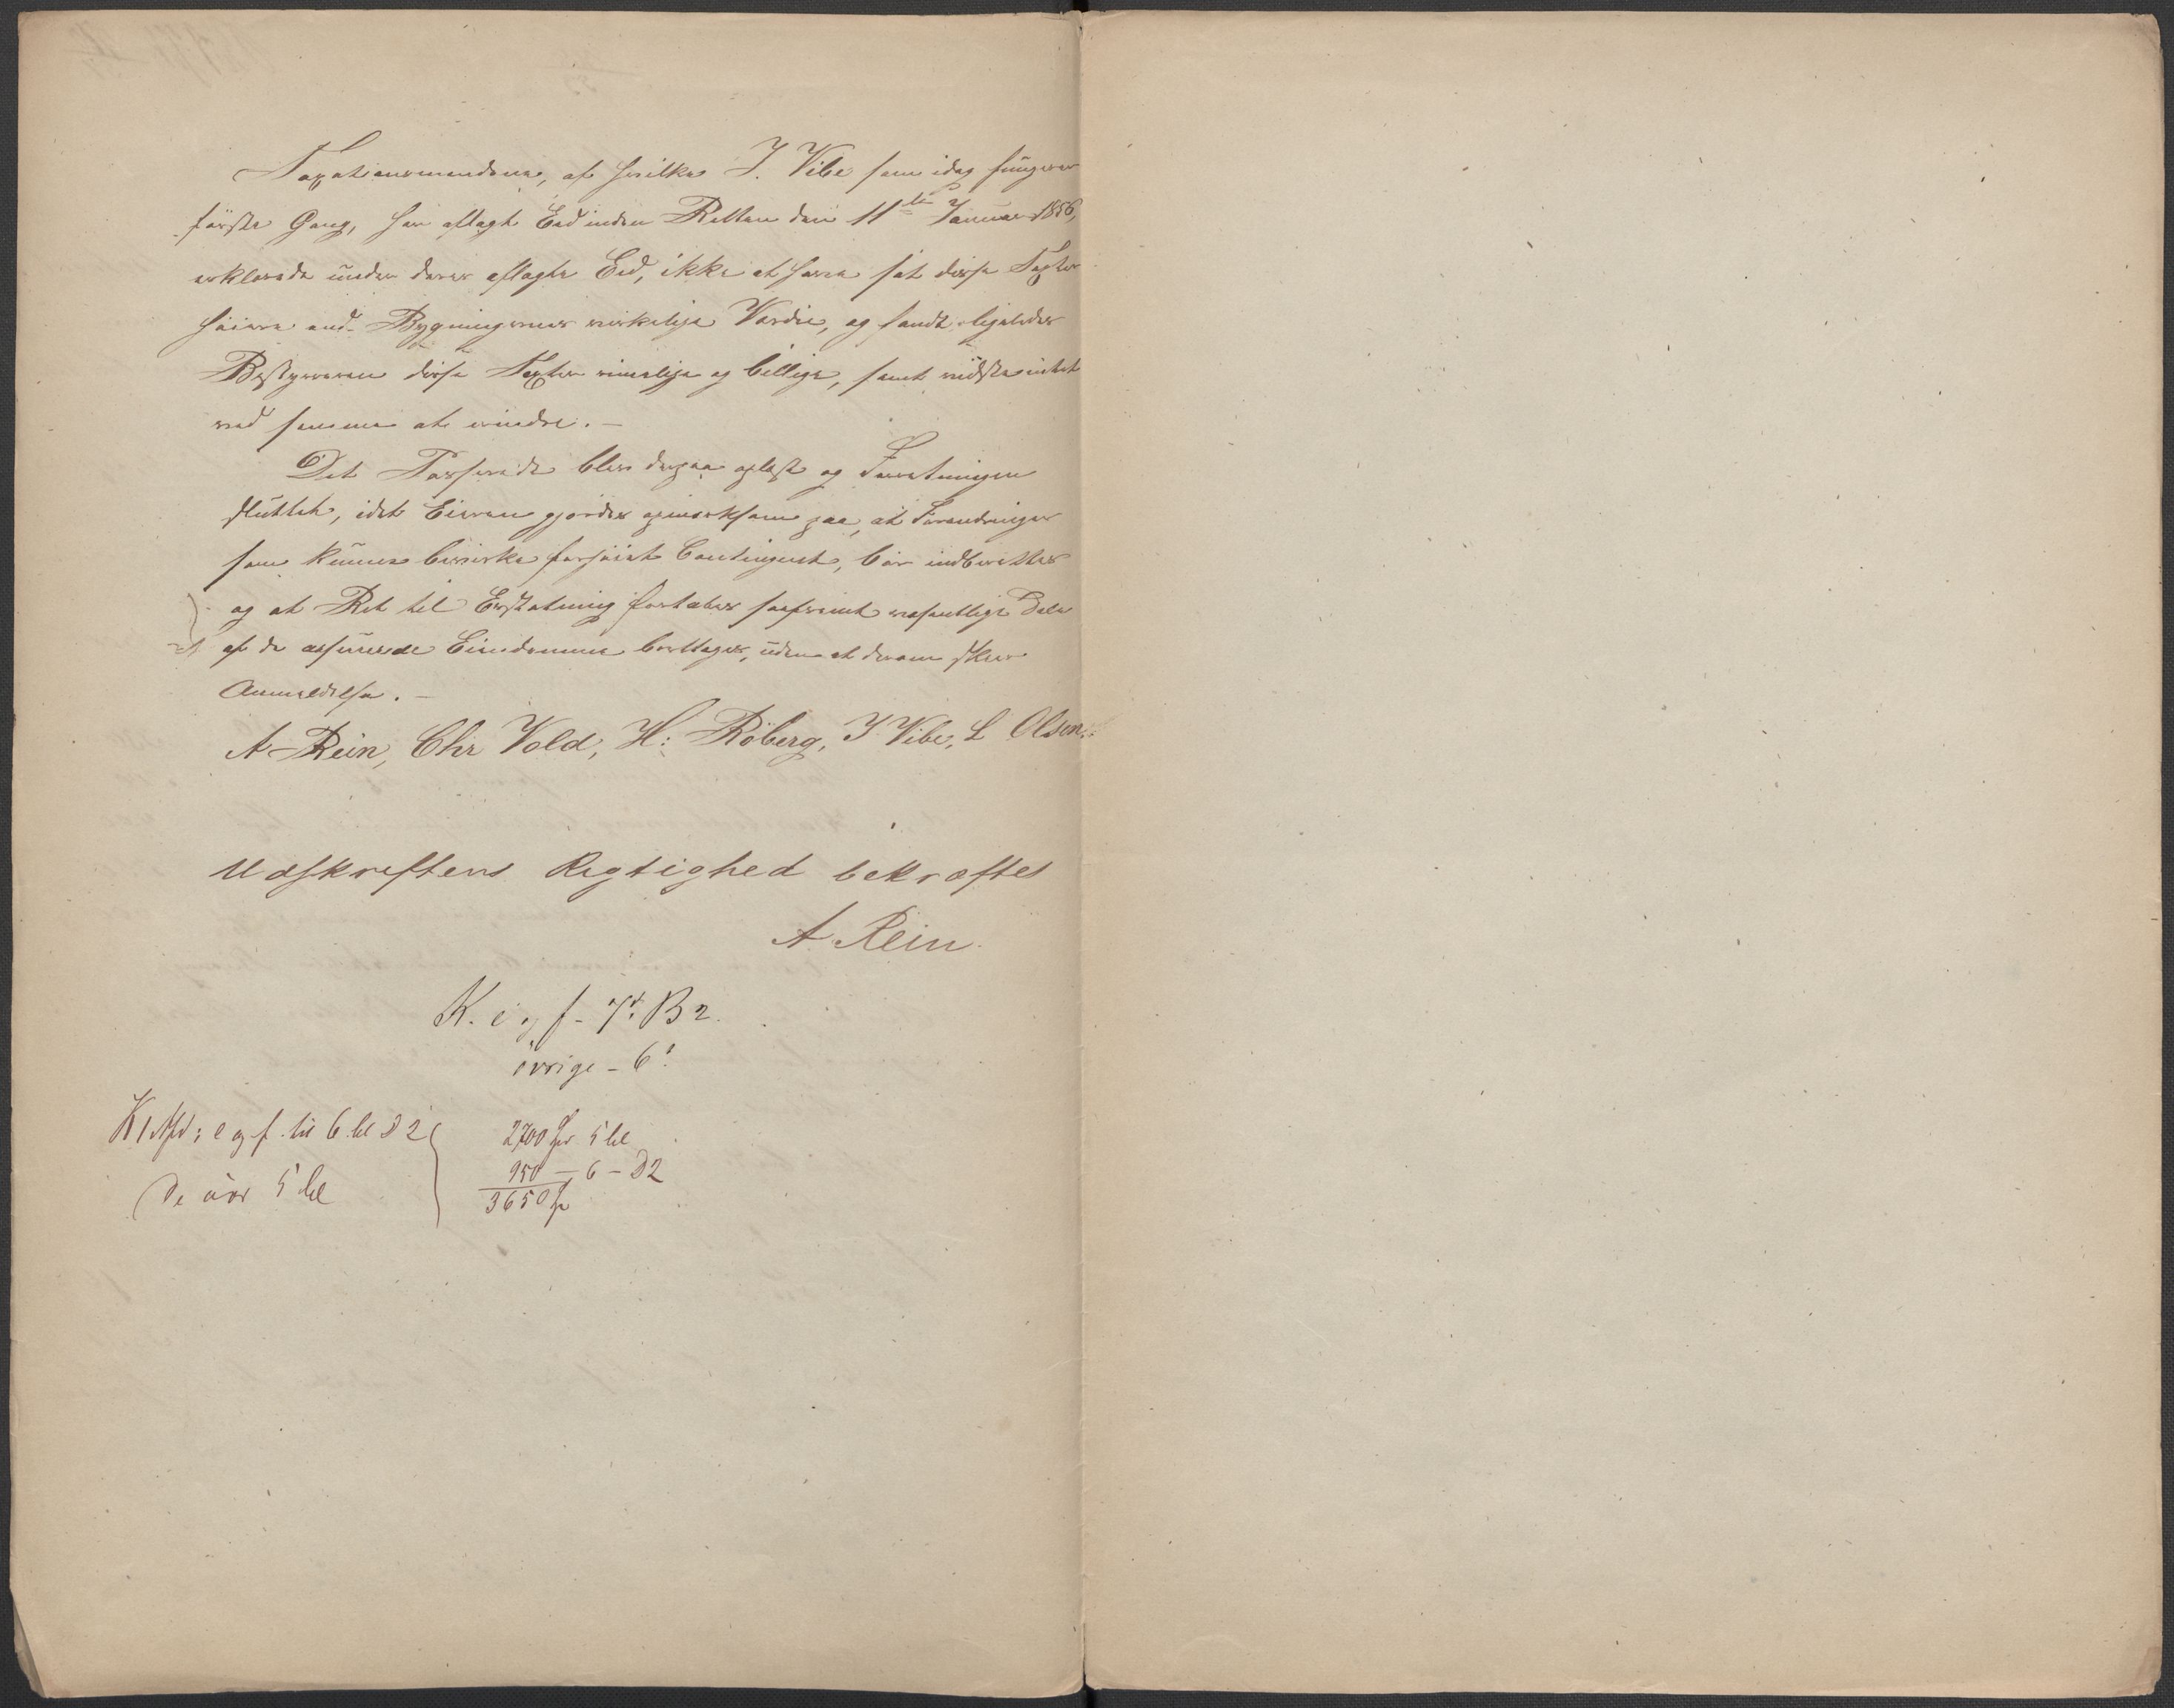 Taxationsmændene, af hvilke J. Vibe som idag fungerer
förste Gang, har aflagt Eed inden Retten den 11te Januar 1856,
erklærede under deres aflagte Eed, ikke at have sat disse Taxter
höiere end Bygningernes virkelige Værdie, og fandt ligeledes
Bestyreren disse Taxter rimelige og billige, samt vidste intet
ved samme at erindre. –
Det Passerede blev derpaa oplæst og Forretningen
sluttet, idet Eieren gjordes opmærksom paa, at Forandringer
som kunne bevirke forhöiet Contingent, bör indberettes
og at Ret til Erstatning fortabes saafremt væsentlige Dele
af de assurerede Eiendomme borttages, uden at derom skeer
Anmeldelse. –
A Rein, Chr Vold, H: Röberg, J Vibe, L Olsen
Udskriftens Rigtighed bekræftes
A. Rein
K. e og f - 7d B 2.
övrige - 6d
e og f. til 6 kl D 2
De övr 5 kl
2700 Spd 5 kl
950 – 6 – D2
3650 Sp